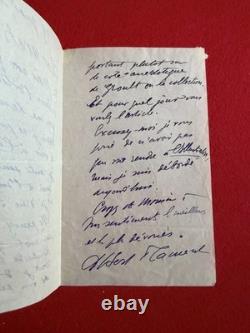 portant plutôt sur
le côté anecdotique
de Groult ou la collection,
et pour quel jour vous
voulez l'article.
Excusez-moi, je vous
prie de n'avoir pas
pu me rendre à
mais je suis débordé
aujourd'hui.
Croyez, à
mes sentiments les meilleurs
et les plus dévoués.
Albert Flament